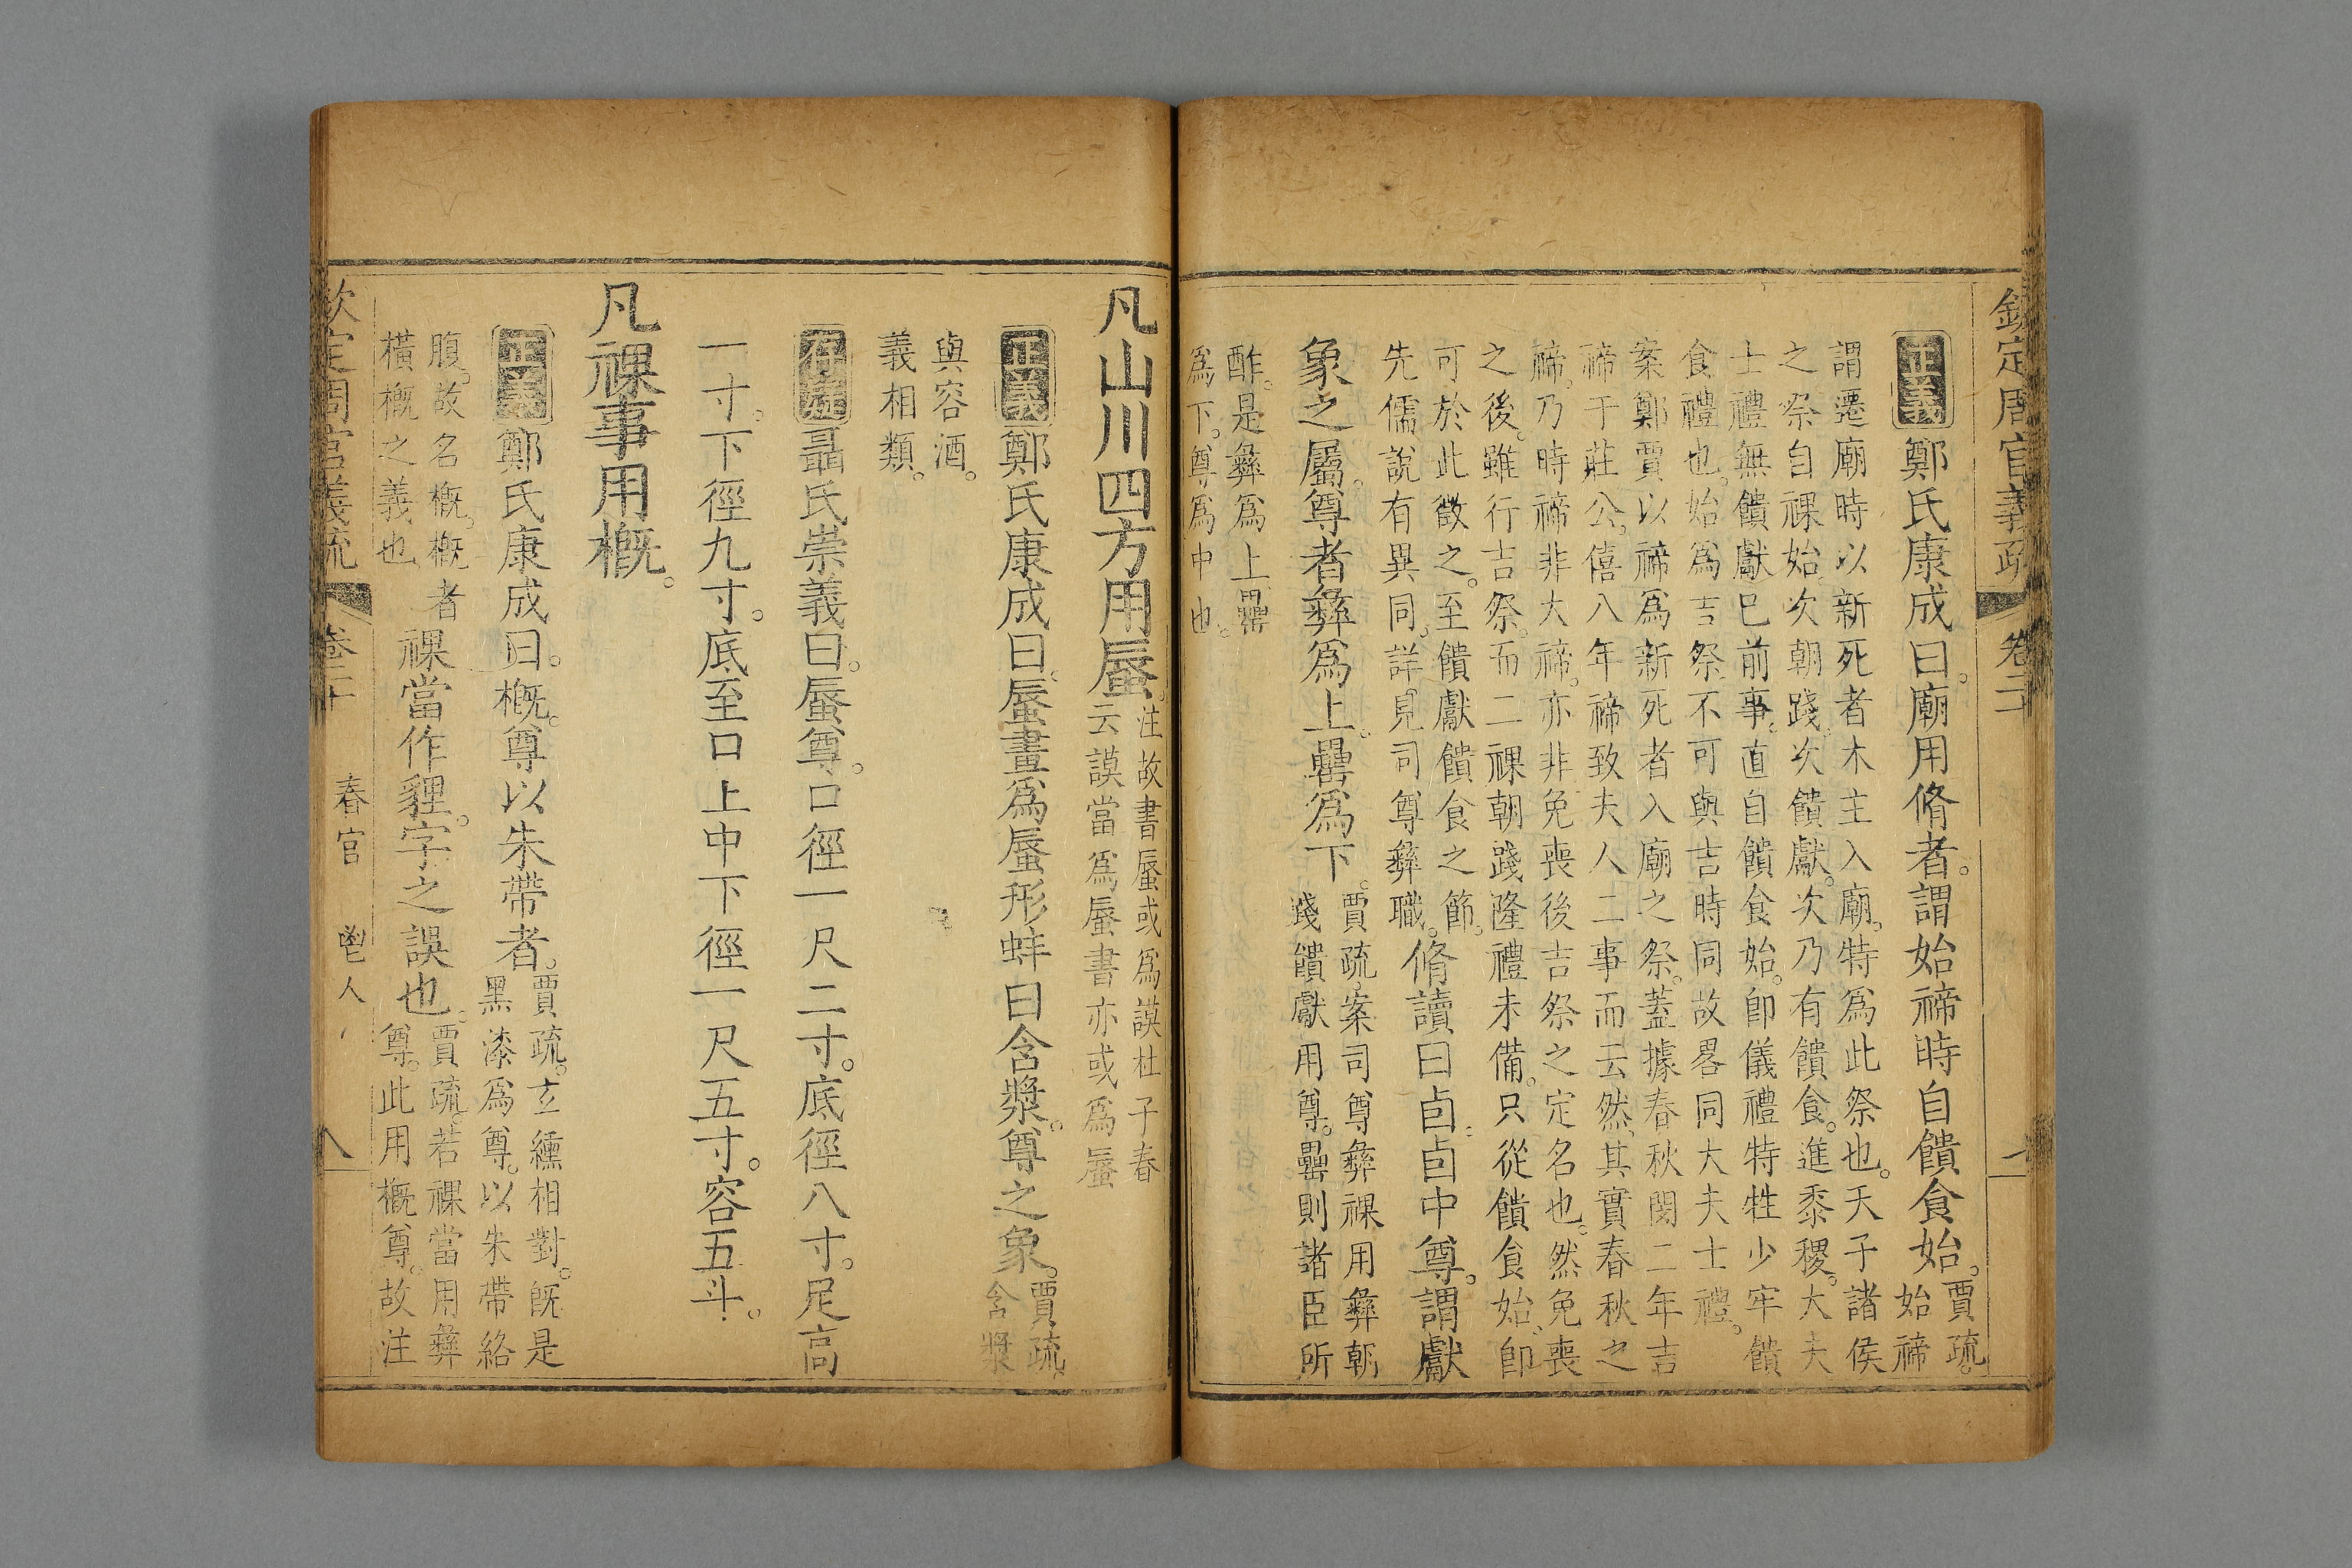 欽定周官義疏 卷二十
正義鄭氏康成曰。廟用脩者。謂始禘時自饋食始。賈疏。
始禘
謂遷廟時以新死者木主入廟。特爲此祭也。天子諸侯
之祭自祼始。次朝踐。次饋獻。次乃有饋食。進黍稷。大夫
士禮無饋獻已前事。直自饋食始。卽儀禮特牲少牢饋
食禮也。始爲吉祭。不可與吉時同故畧同大夫士禮。
案鄭賈以禘爲新死者入廟之祭。蓋據春秋閔二年吉
禘于莊公。僖八年禘致夫人二事而云然。其實春秋之
禘。乃時禘非大禘。亦非免喪後吉祭之定名也。然免喪
之後。雖行吉祭。而二祼朝踐隆禮未備。只從饋食始。卽
可於此徵之。至饋獻饋食之節。
先儒說有異同。詳見司尊彝職。
脩讀曰卣卣中尊。謂獻
象之屬。尊者彝爲上。罍爲下。
賈疏。案司尊彝祼用彝朝
踐饋獻用尊。罍則諸臣所
酢。是彝爲上罍
爲下。尊爲中也。
凡山川四方用蜃。
注故書蜃或爲謨杜子春
云謨當爲蜃書亦或爲蜃
正義鄭氏康成曰。蜃畫爲蜃形蚌曰含漿。尊之象。
賈疏
含漿
與容酒。
義相類。
存疑聶氏崇義曰。蜃尊。口徑一尺二寸。底徑八寸。足高
一寸。下徑九寸。底至口上中下徑一尺五寸。容五斗。
凡祼事用概。
正義鄭氏康成曰。概。尊以朱帶者。
賈疏。玄纁相對。既是
黑漆爲尊。以朱帶絡
腹。故名概。概者
橫概之義也
祼當作貍。字之誤也。
賈疏。若祼當用彝
尊。此用概尊。故注
欽定周官義疏 卷二十 春官 鬯人